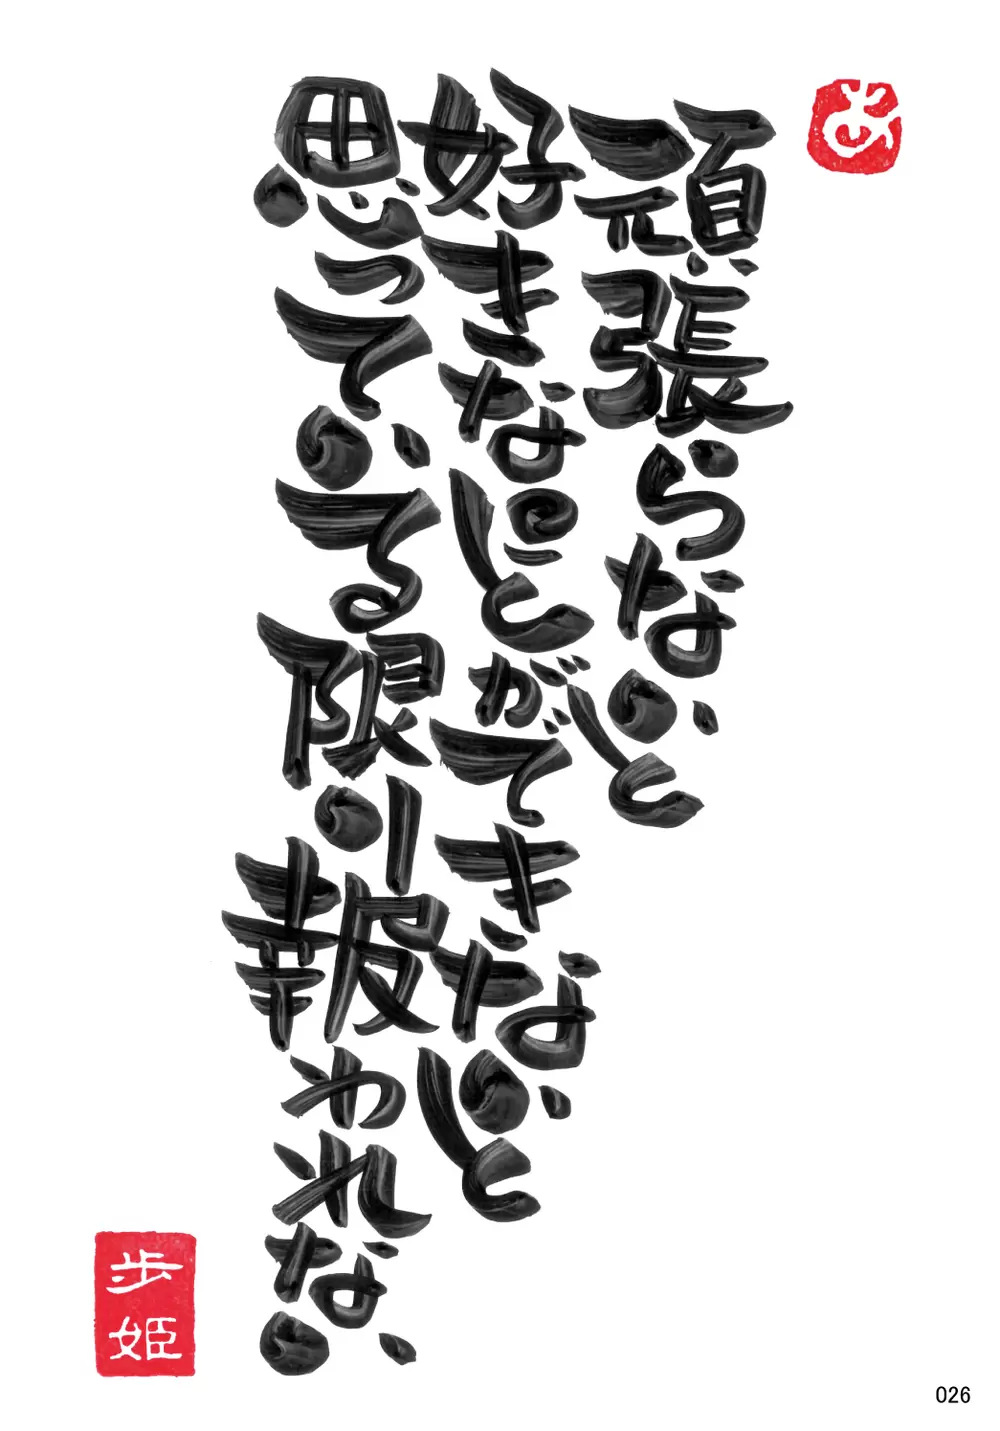 あ
頑張らないと
好きなことができないと
思っている限り報われない
歩姫
026